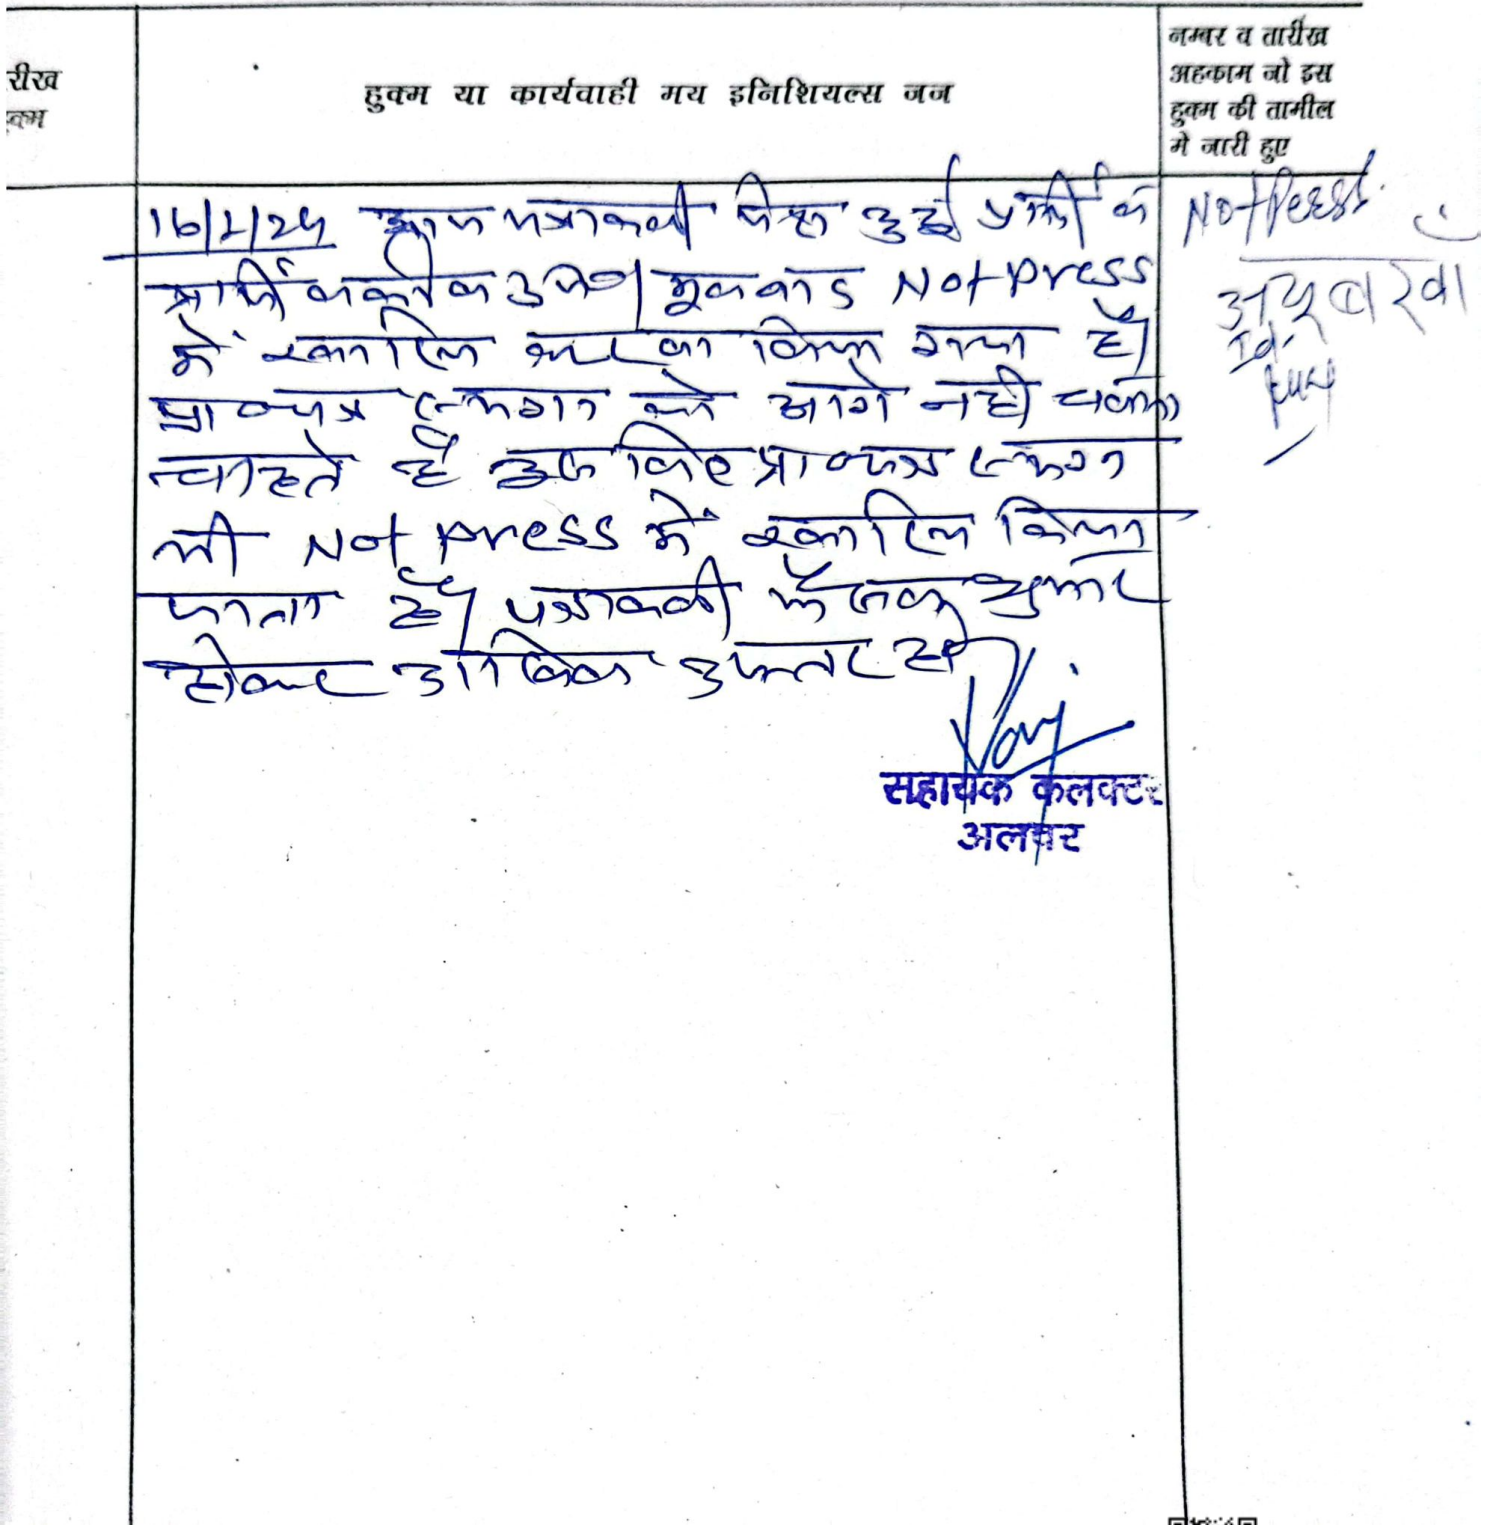 रीख
क्म
हुक्म या कार्यवाही मय इनिशियल्स जज
नम्बर व तारीख
अहकाम जो इस
हुक्म की तामील
मे जारी हुए
आज पत्रावली पेश हुई प्रार्थी व
प्रार्थी वकील उप० मूलवाद Not press
में खारिज करवा लिया गया है।
प्रा० पत्र स्थगन को आगे नही चलाना
चाहते है इस लिए प्रा० पत्र स्थगन
भी Not press में खारिज किया
जाता है। पत्रावली फैसल शुमार
होकर दाखिल दफ्तर हो
सहायक कलक्टर
अलवर
Not Press
अयूब खां
Id.